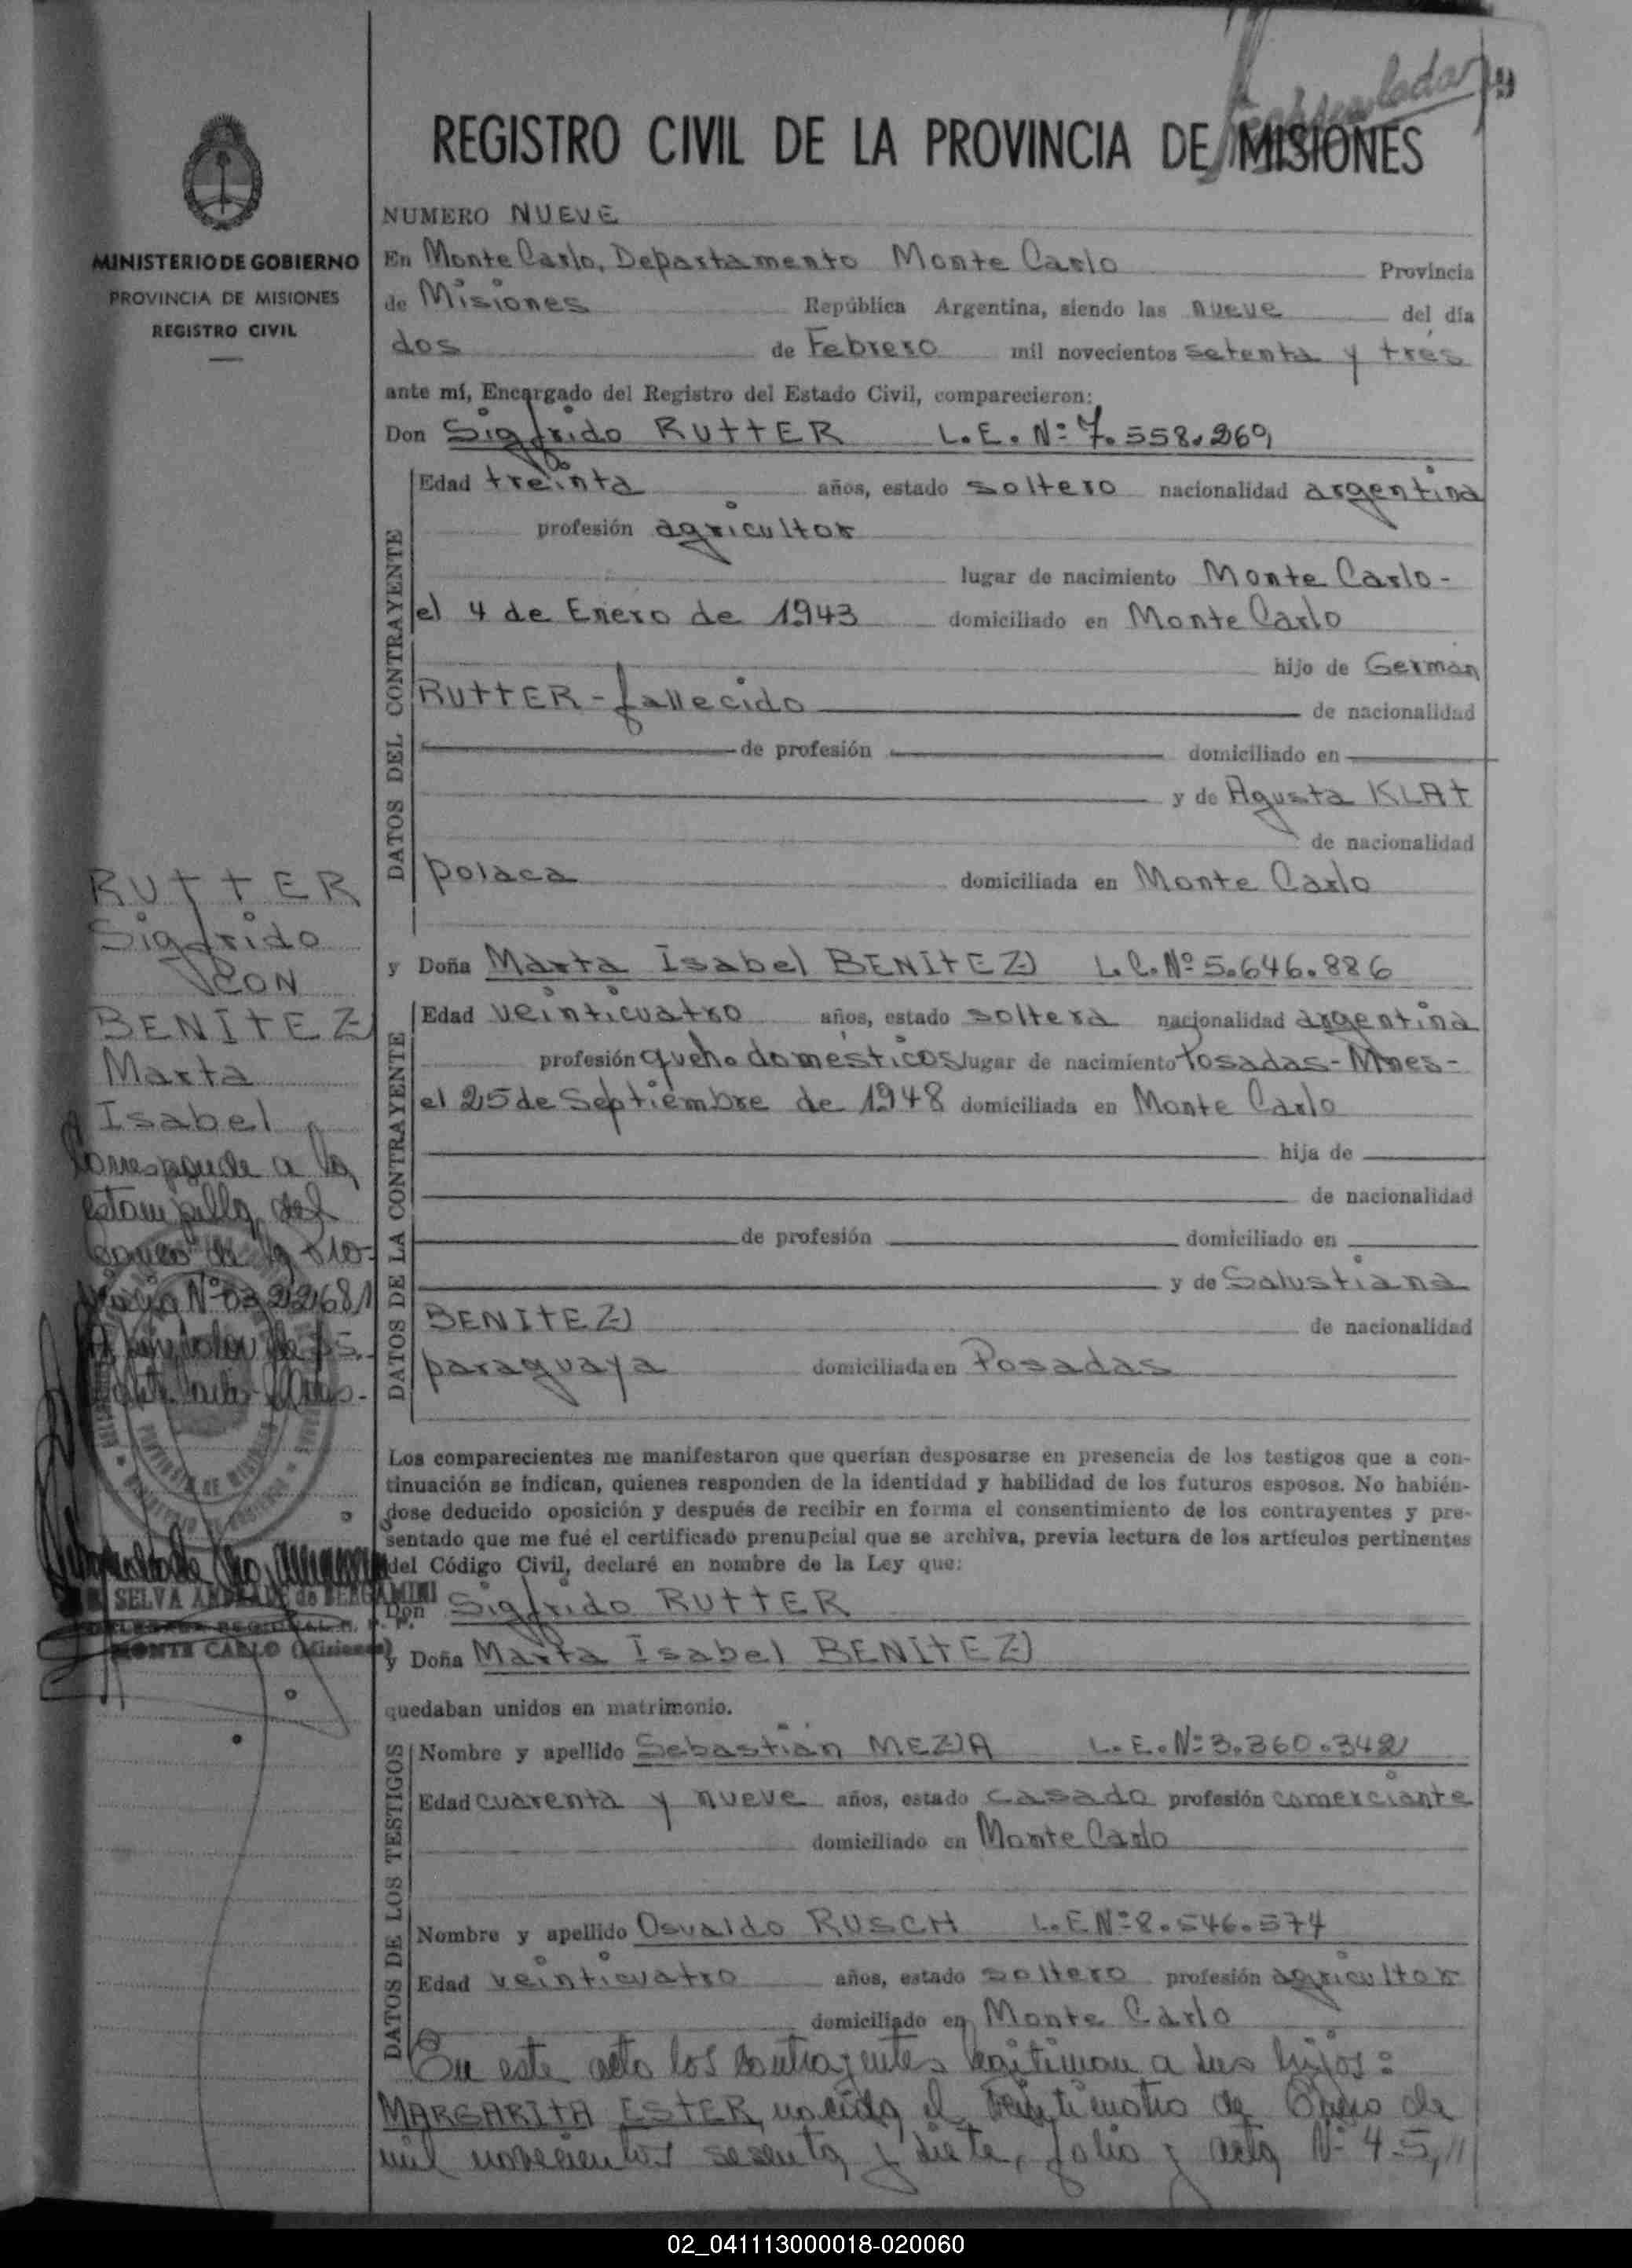 REGISTRO CIVIL DE LA PROVINCIA DE MISIONES
MINISTERIO DE GOBIERNO
PROVINCIA DE MISIONES
REGISTRO CIVIL
NUMERO NUEVE
En Monte Carlo, Departamento Monte Carlo Provincia
de Misiones República Argentina, siendo las nueve del día
dos de Febrero mil novecientos setenta y tres
ante mí, Encargado del Registro del Estado Civil, comparecieron:
Don Sigfrido RUTTER L.E. Nº 7.558.269
DATOS DEL CONTRAYENTE
Edad treinta años, estado soltero nacionalidad argentina
profesión agricultor
lugar de nacimiento Monte Carlo-
el 4 de Enero de 1943 domiciliado en Monte Carlo
hijo de Germán
RUTTER - fallecido de nacionalidad
de profesión domiciliado en
y de Agusta KLAT
de nacionalidad
polaca domiciliada en Monte Carlo
RUTTER
Sigfrido
CON
BENITEZ
Marta
Isabel
Corresponde a la
estampilla del
y Doña Marta Isabel BENITEZ L.C. Nº 5.646.886
DATOS DE LA CONTRAYENTE
Edad veinticuatro años, estado soltera nacionalidad argentina
profesión queh. domésticos lugar de nacimiento Posadas-Mnes-
el 25 de Septiembre de 1948 domiciliada en Monte Carlo
hija de
de nacionalidad
de profesión domiciliado en
y de Salustiana
BENITEZ de nacionalidad
paraguaya domiciliada en Posadas
Los comparecientes me manifestaron que querían desposarse en presencia de los testigos que a con-
tinuación se indican, quienes responden de la identidad y habilidad de los futuros esposos. No habién-
dose deducido oposición y después de recibir en forma el consentimiento de los contrayentes y pre-
sentado que me fué el certificado prenupcial que se archiva, previa lectura de los artículos pertinentes
del Código Civil, declaré en nombre de la Ley que:
SELVA ANDRADE de BERGAMINI
MONTE CARLO (Misiones)
Don Sigfrido RUTTER
y Doña Marta Isabel BENITEZ
quedaban unidos en matrimonio.
DATOS DE LOS TESTIGOS
Nombre y apellido Sebastián MEZA L.E. Nº 3.360.342
Edad cuarenta y nueve años, estado casado profesión comerciante
domiciliado en Monte Carlo
Nombre y apellido Osvaldo RUSCH L.E Nº 8.546.574
Edad veinticuatro años, estado soltero profesión agricultor
domiciliado en Monte Carlo
En este acto los contrayentes legitiman a sus hijos:
MARGARITA ESTER, nacida el veinticuatro de Enero de
mil novecientos sesenta y siete, folio y acta Nº 45,//
02_041113000018-020060